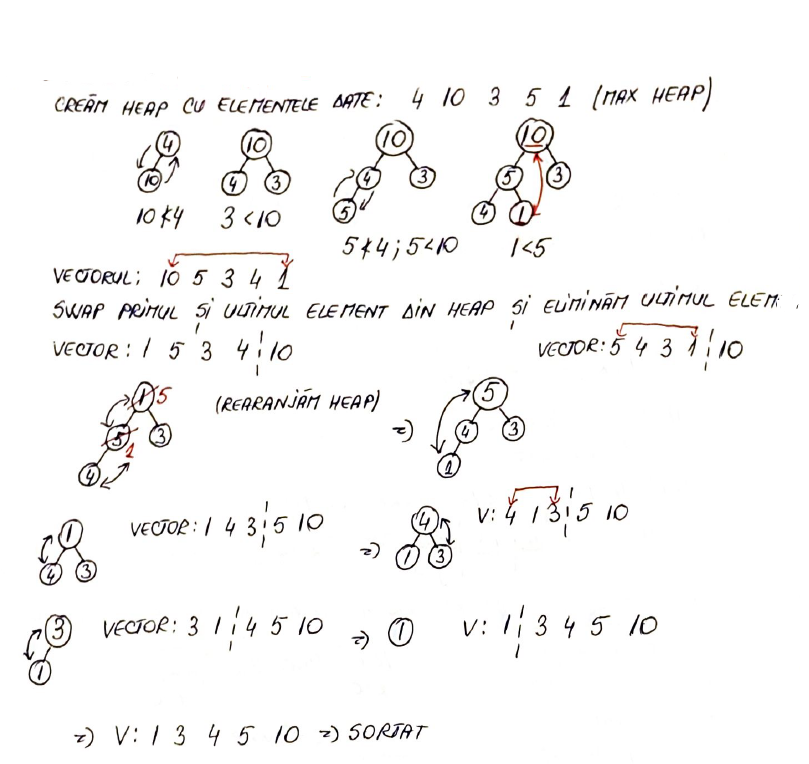 CREĂM HEAP CU ELEMENTELE DATE: 4 10 3 5 1 (MAX HEAP)
4 10 10 10
10 4 3 4 3 5 3
5 4 1
10 ≮ 4 3 < 10
5 ≮ 4 ; 5 < 10 1 < 5
VECTORUL; 10 5 3 4 1
SWAP PRIMUL ȘI ULTIMUL ELEMENT DIN HEAP ȘI ELIMINĂM ULTIMUL ELEM.
VECTOR: 1 5 3 4 ¦ 10 VECTOR: 5 4 3 1 ¦ 10
1 5 (REARANJĂM HEAP) 5
5 1 3 => 4 3
4 1
1 VECTOR: 1 4 3 ¦ 5 10 4 V: 4 1 3 ¦ 5 10
4 3 => 1 3
3 VECTOR: 3 1 ¦ 4 5 10 => 1 V: 1 ¦ 3 4 5 10
1
=> V: 1 3 4 5 10 => SORTAT